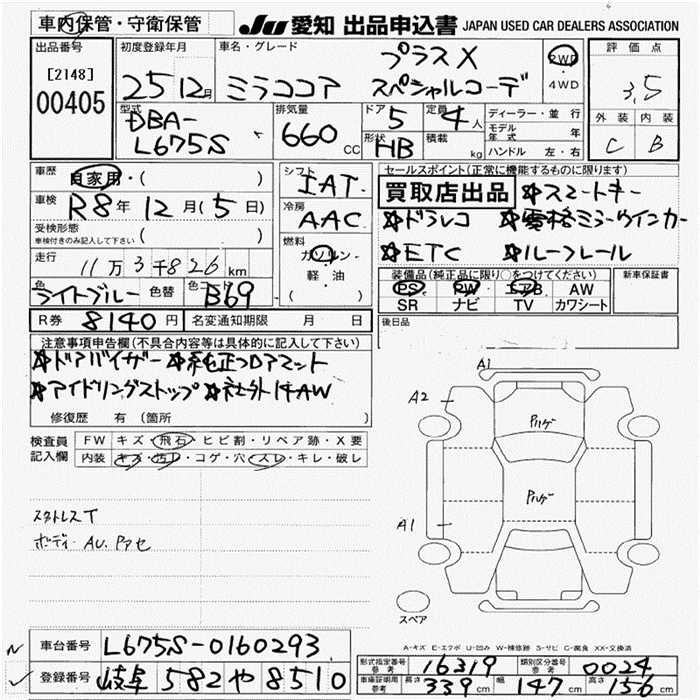 車内保管・守衛保管 JU 愛知 出品申込書 JAPAN USED CAR DEALERS ASSOCIATION
出品番号 初度登録年月 車名・グレード 評価点
[2148] 00405 25 12月 ミラココア プラスX スペシャルコーデ 2WD ・4WD 3,5
型式 排気量 ドア 定員 ディーラー・並行 外装 内装
DBA-L675S 660cc 5 4人 モデル年式 年 C B
形状 HB 積載 kg ハンドル 左・右
車歴 自家用・( ) シフト IAT セールスポイント(正常に機能するものに限ります)
車検 R8年 12月(5日) 冷房 AAC 買取店出品 ☆スマートキー
受検形態 車検付きのみ記入して下さい ( ) ☆ドラレコ ☆電格ミラーウインカー
走行 11万3千826km 燃料 ガソリン・軽・油 ( ) ☆ETC ☆ルーフレール
色 ライトブルー 色替 色コード B69 装備品(純正品に限り○をつけてください) 新車保証書
PS PW エアB AW
SR ナビ TV カワシート
R券 8140円 名変通知期限 月 日 後日品
注意事項申告欄(不具合内容等は具体的に記入して下さい)
☆ドアバイザー ☆純正フロアマット
☆アイドリングストップ ☆社外14AW
修復歴 有 (箇所 )
検査員記入欄 FW キズ・飛石・ヒビ割・リペア跡・X要
内装 キズ・汚レ・コゲ・穴・スレ・キレ・破レ
A1
A2
Pハゲ
Pハゲ
A1
スタトレスT
ボディー AU. Pアセ
スペア
A-キズ E-エクボ U-凹み W-補修跡 S-サビ C-腐食 XX-交換済
車台番号 L675S-0160293
形式指定番号 参考 16319 類別区分番号 参考 0024
登録番号 岐阜 582 や 8510
車庫証明用 参考 長さ 339cm 幅 147cm 高さ 156cm